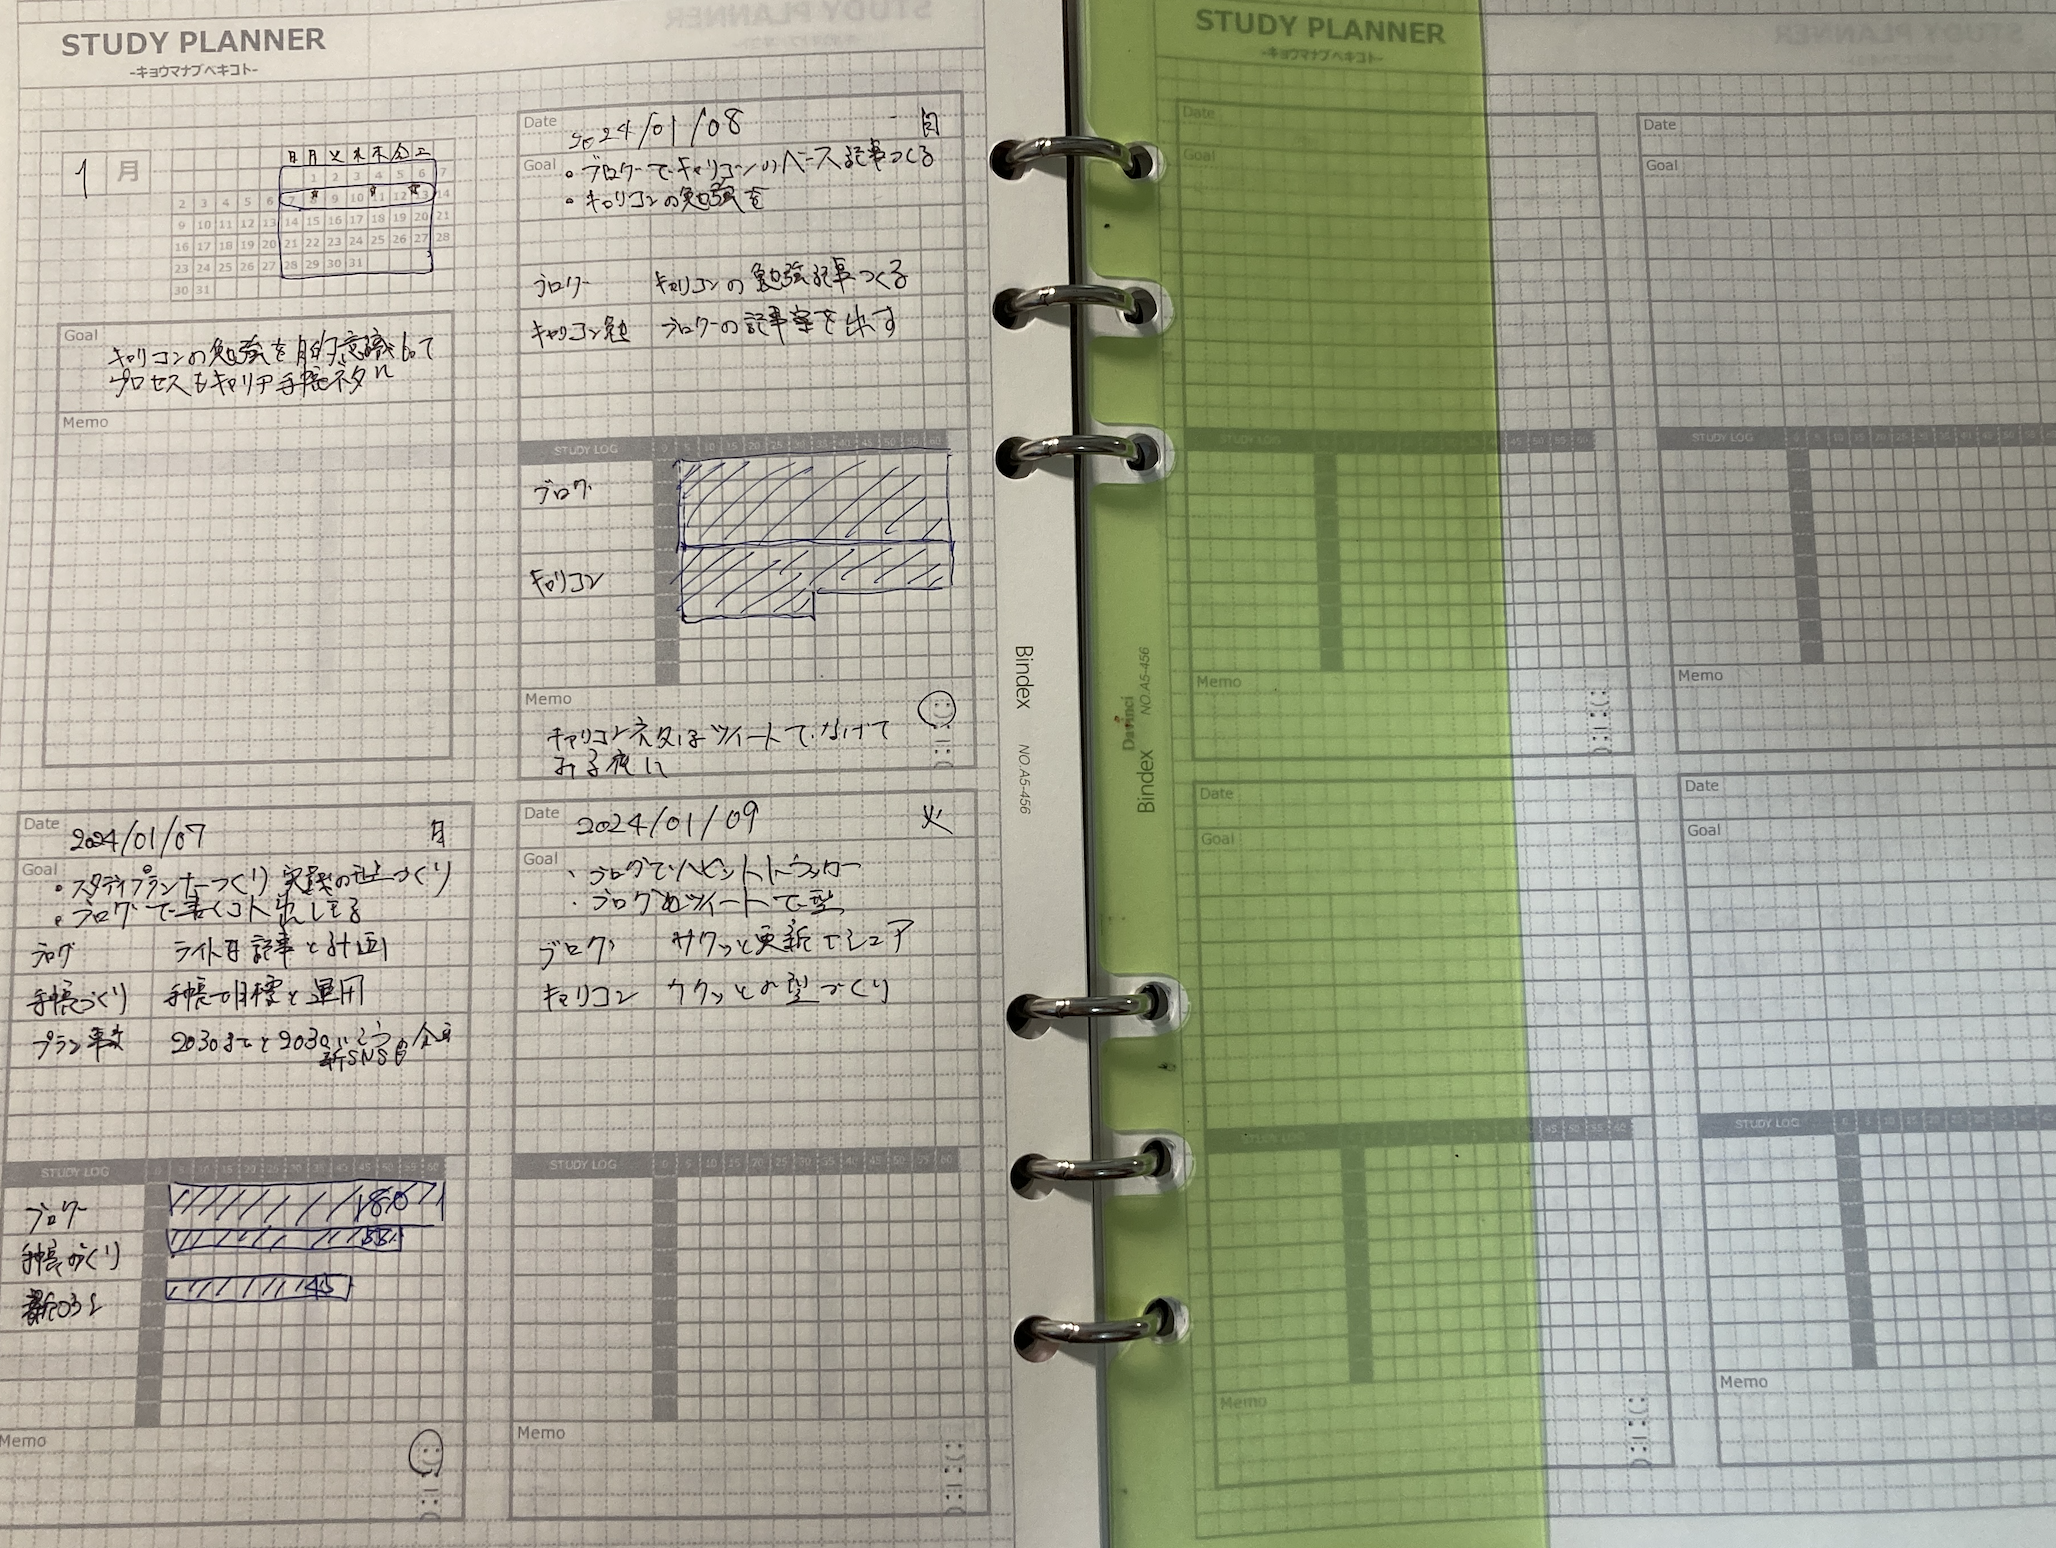 STUDY PLANNER
-キョウマナブベキコト-
1 月
日 月 火 水 木 金 土
1 2 3 4 5 6 7
2 3 4 5 6 7 8 9 10 11 12 13 14
9 10 11 12 13 14 15 16 17 18 19 20 21
16 17 18 19 20 21 22 23 24 25 26 27 28
23 24 25 26 27 28 29 30 31
30 31
Goal
キャリコンの勉強を目的意識もって
プロセスもキャリア手帳ネタに
Memo
Date 2024/01/07 月
Goal
・スタディプランナーづくり 実践の土台づくり
・ブログで書くコト出してる
ブログ
手帳づくり 手帳の目標と運用
プラン 2030までと2030
新SNS
STUDY LOG 0 5 10 15 20 25 30 35 40 45 50 55 60
ブログ 180
手帳づくり 55
45
Memo
Date 2024/01/08 月
Goal
・ブログでキャリコンのベース記事つくる
・キャリコンの勉強を
ブログ キャリコンの勉強記事つくる
キャリコン勉 ブログの記事案を出す
STUDY LOG 0 5 10 15 20 25 30 35 40 45 50 55 60
ブログ
キャリコン
Memo
キャリコンネタはツイートでなげて
みる夜に
Date 2024/01/09 火
Goal
・ブログで
・ブログめツイートで型
ブログ サクッと更新でシェア
キャリコン サクッとの型づくり
STUDY LOG 0 5 10 15 20 25 30 35 40 45 50 55 60
Memo
Bindex NO.A5-456
Bindex NO.A5-456
Davinci
STUDY PLANNER
-キョウマナブベキコト-
Date
Goal
STUDY LOG 45 50 55 60
Memo
Date
Goal
STUDY LOG
Memo
Date
Goal
STUDY LOG 45 50 55 60
Memo
Date
Goal
STUDY LOG
Memo